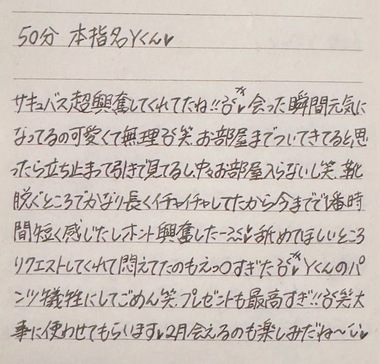 50分 本指名Yくん♥
サキュバス超興奮してくれてたね!! 会った瞬間元気に
なってるの可愛くて無理 笑 お部屋までついてきてると思
ったら立ち止まって引きで見てるし、中々お部屋入らないし笑、靴
脱ぐところでかなり長くイチャイチャしてたから今までで1番時
間短く感じたしホント興奮したー♥舐めてほしいところ
リクエストしてくれて悶えてたのもえっ○すぎた♥Yくんのパ
ンツ犠牲にしてごめん笑 プレゼントも最高すぎ!! 笑大
事に使わせてもらいます♥2月会えるのも楽しみだね〜♥